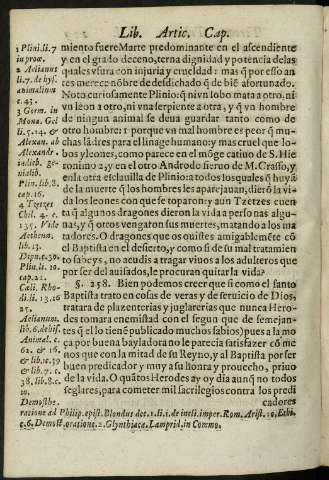 Lib. Artic. Cap.
1 Plini.li.7
in prow.
2 Aelianus
li.7.de hyst.
animalium
c. 43.
3 Germ. in
li.5.14. &
Alexan. ab
Alexandr.
cap.16.
4 Tzetzes
Chil. 4. c.
lib.13.
Plin.li.10.
cap.21.
Cæli. Rho-
di.li.13.16
25.
Aelianum.
Animal. c.
61. & 16.
38.lib.8.c.
10.
Demosthe.
miento fuere Marte predominante en el ascendiente
y en el grado deceno, terna dignidad y potencia de las
quales vsura con injuria y crueldad: mas q̃ por esso an
tes merece nõbre de desdichado q̃ de biẽ afortunado.
Noto curiosamente Plinio: q̃ ni vn lobo mata a otro, ni
vn leon a otro, ni vna serpiente a otra, y q̃ vn hombre
de ningun animal se deua guardar tanto como de
otro hombre: 1 porque vn mal hombre es peor q̃ mu-
chas ladres para el linage humano: y mas cruel que lo-
bos y leones, como parece en el mõge catiuo de S. Hie
ronimo 2, y en el otro Androdo sieruo de M. Crasso, y
en la otra esclauilla de Plinio: a todos los quales q̃ huyã
de la muerte q̃ los hombres les aparejauan, dierõ la vi-
da los leones con que se toparon: y aun Tzetzes cuen
ta q̃ algunos dragones dieron la vida a personas algu-
nas, y q̃ otros vengaron sus muertes, matando a los ma
tadores. O dragones que os ouistes amigablemẽte cõ
el Baptista en el desierto, y como si de su mal tratamien
to sabeys, no acudis a tragar viuos a los adulteros que
por ser del auisados, le procuran quitar la vida?
§. 258. Bien podemos creer que si como el santo
Baptista trato en cosas de veras y de seruicio de Dios,
tratara de plazenterias y juglarerias que nunca Hero-
des tomara enemistad con el (segun que de semejan-
tes q̃ el lo tiene publicado muchos sabios) pues a la mo
ça por buena bayladora no le parecia satisfazer cõ me
nos que con la mitad de su Reyno, y al Baptista por ser
buen predicador y muy a su honra y prouecho, priuo
de la vida. O quãtos Herodes ay oy dia aunq̃ no todos
seglares, para cometer mil sacrilegios contra los predi
cadores
ratione ad Philip. epist. Blondus dec.1.li.1.de incli.imper.Rom. Arist.10.Ethi.
c.6. Demost.oratione.2. Olynthiaca. Lamprid. in Commo.